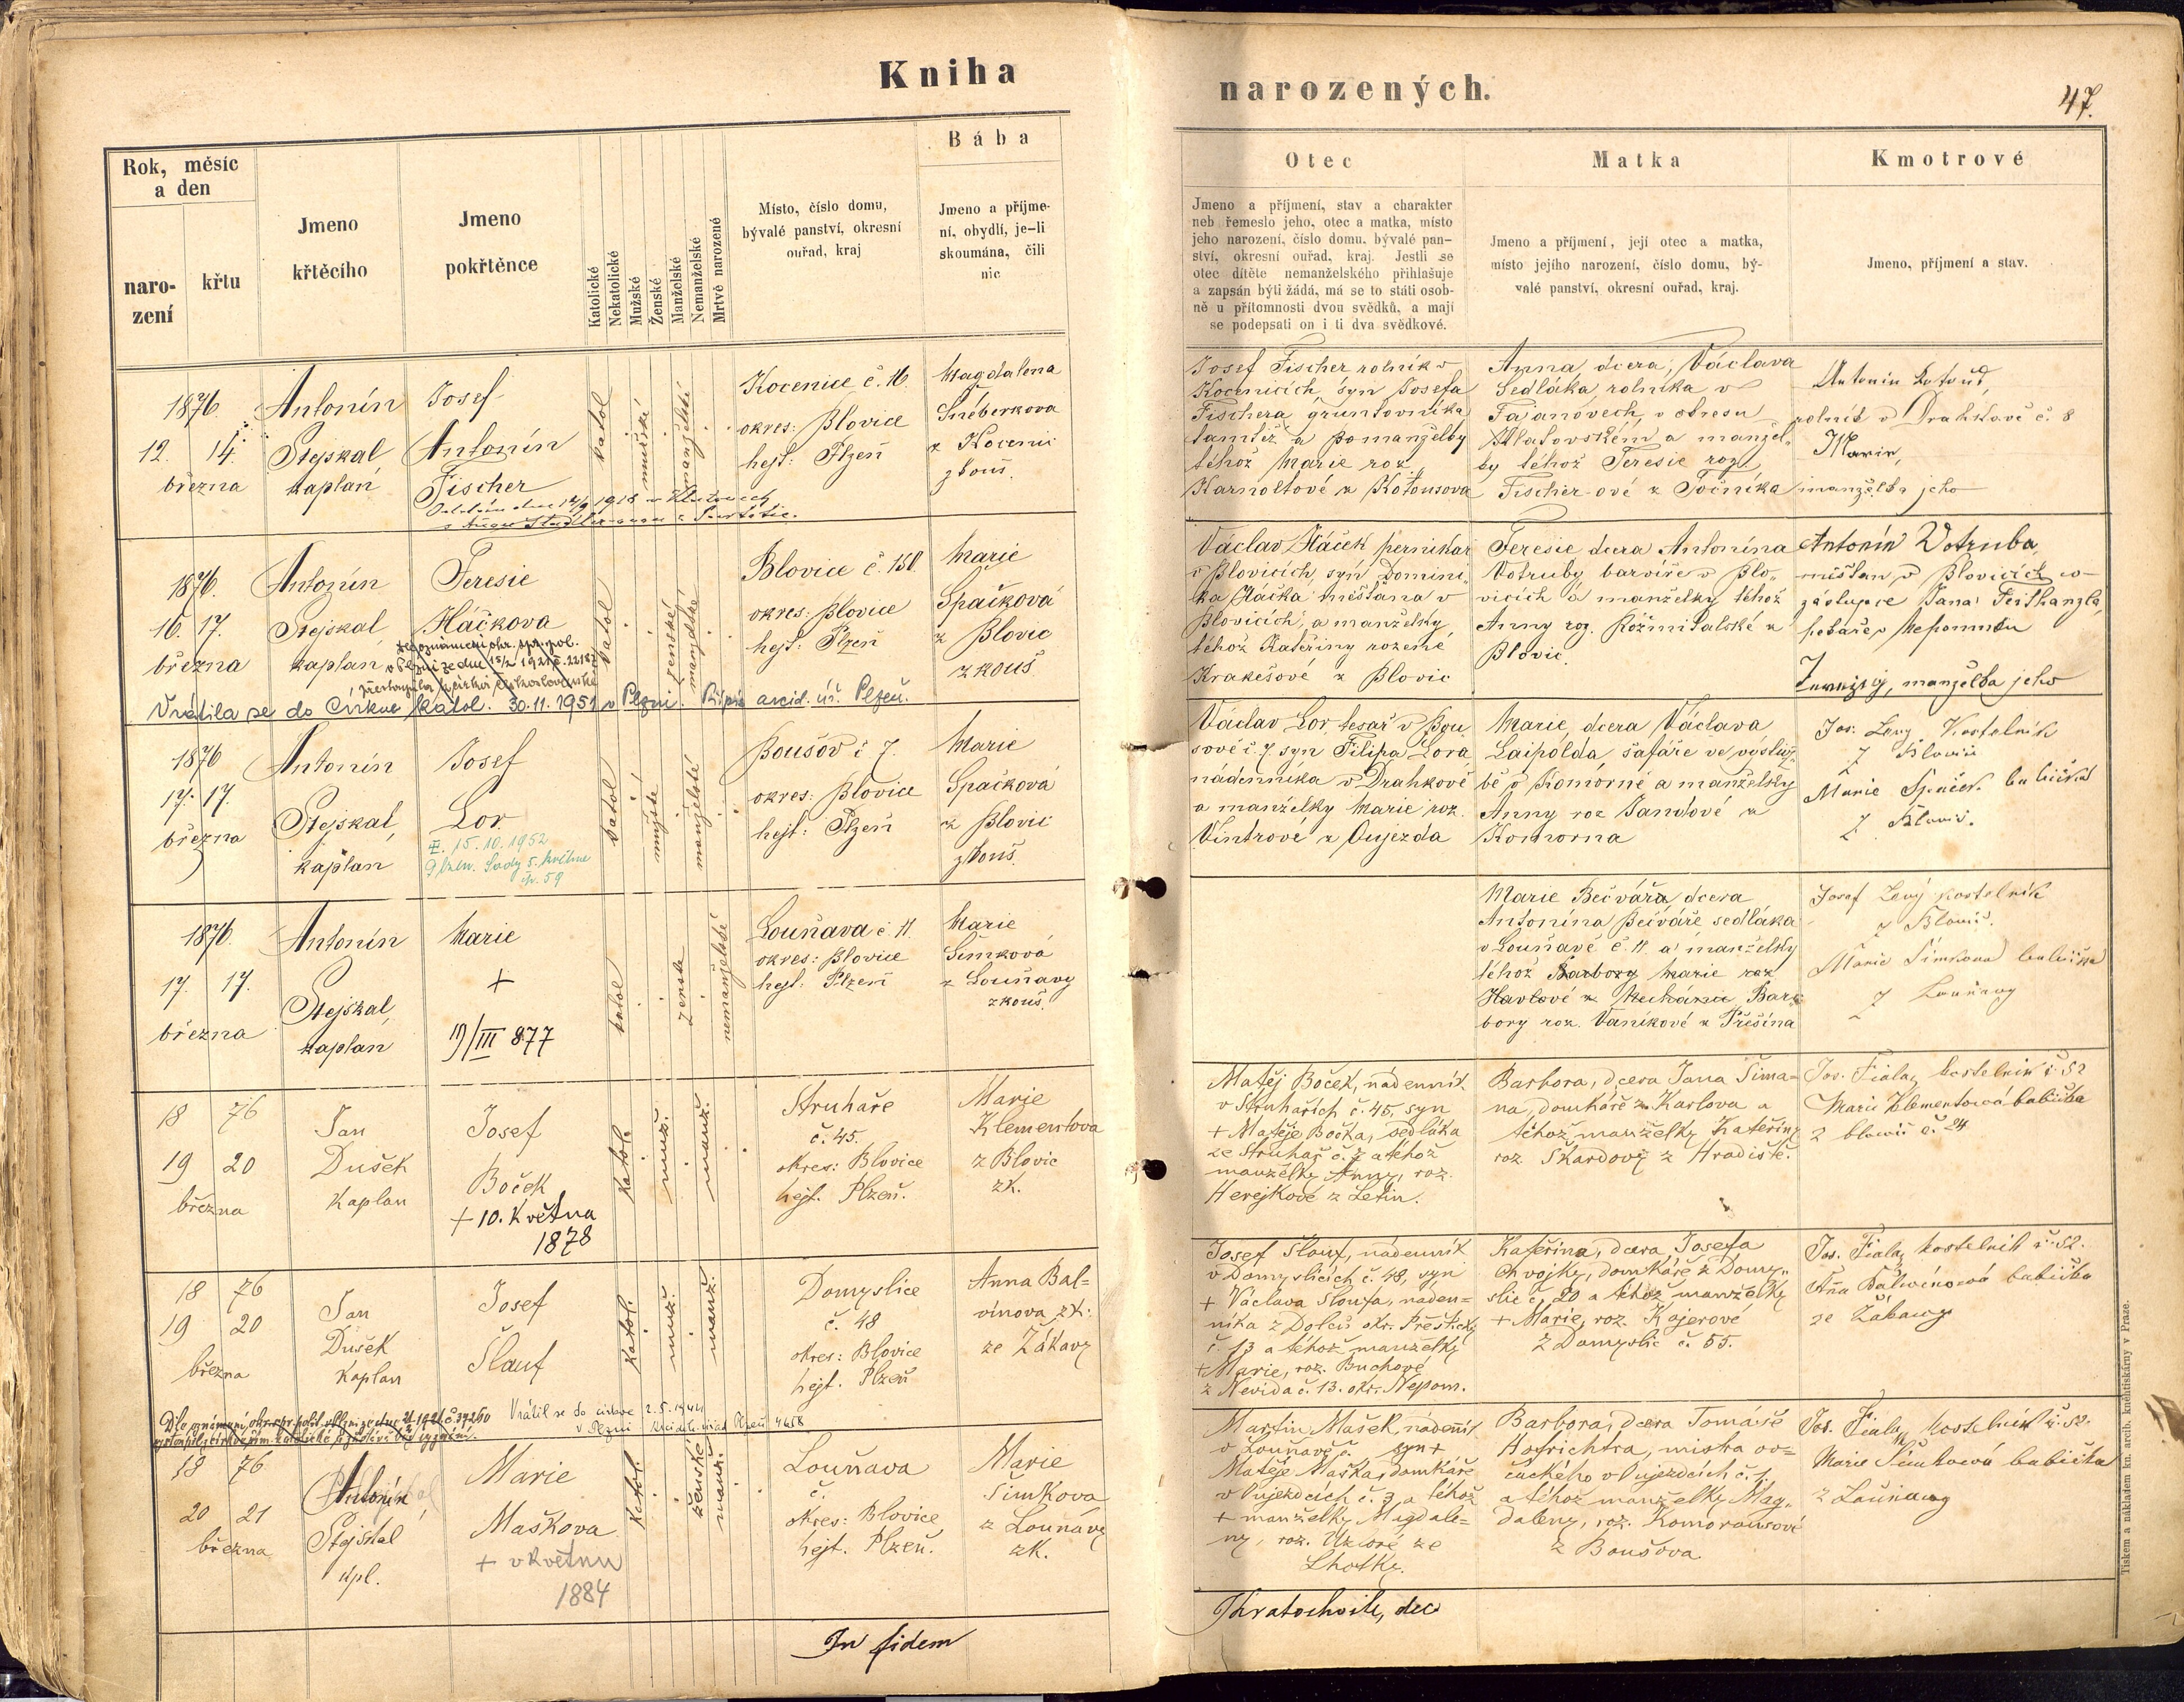 Kniha
narozených.
47.
Rok, měsíc
a den
naro-
zení
křtu
Jmeno
křtěcího
Jmeno
pokřtěnce
Katolické
Nekatolické
Mužské
Ženské
Manželské
Nemanželské
Mrtvě narozené
Místo, číslo domu,
bývalé panství, okresní
ouřad, kraj
Bába
Jmeno a příjme-
ní, obydlí, je-li
skoumána, čili
nic
Otec
Jmeno a příjmení, stav a charakter
neb řemeslo jeho, otec a matka, místo
jeho narození, číslo domu, bývalé pan-
ství, okresní ouřad, kraj. Jestli se
otec dítěte nemanželského přihlašuje
a zapsán býti žádá, má se to státi osob-
ně u přítomnosti dvou svědků, a mají
se podepsati on i ti dva svědkové.
Matka
Jmeno a příjmení, její otec a matka,
místo jejího narození, číslo domu, bý-
valé panství, okresní ouřad, kraj.
Kmotrové
Jmeno, příjmení a stav.
1876.
12. 14.
března
Antonín
Stejskal
kaplan
Josef
Antonín
Fischer
katol
mužské
manželské
Kocenice č. 16.
okres: Blovice
hejt: Plzeň
Magdalena
Šneberkova
z Kocenic
zkouš.
Josef Fischer rolník v
Kocenicích, syn Josefa
Fischera gruntovníka
tamtéž a pomanželky
téhož Marie roz.
Karnoltové z Kotousova
Anna, dcera Václava
Sedláka, rolníka v
Tajanovech, v okresu
Klatovském a manžel-
ky téhož Teresie roz.
Fischer-ové z Točníka
rolník v Drahkově č. 8
Marie,
manželka jeho
1876.
16. 17.
března
Antonín
Stejskal
kaplan
Teresie
Háčkova
Vrátila se do Církve katol. 30.11.1951 v Plzni. arcid. úř. Plzeň.
katol
ženské
manželské
Blovice č. 150
okres: Blovice
hejt: Plzeň
Marie
Spačková
z Blovic
zkouš
Václav Háček perníkář
v Blovicích, syn Domini-
ka Háčka měšťana v
Blovicích, a manželky
téhož Kateřiny rozené
Krakešové z Blovic
Teresie dcera Antonína
Votruby, barvíře v Blo-
vicích a manželky téhož
Anny roz. Rožmitalské z
Blovic.
Antonín Votruba,
měšťan v Blovicích co
zástupce Jana
v Nepomuku
manželka jeho
1876
17. 17.
března
Antonín
Stejskal
kaplan
Josef
Lor.
15.10.1952
Plzeň. Sady 5. května
čp. 59
katol
mužské
manželské
Boušov č 7.
okres: Blovice
hejt: Plzeň
Marie
Spačková
z Blovic
zkouš.
Václav Lor, tesař v Bou
sově č. 7, syn Filipa Lora
nádenníka v Drahkově
a manželky Marie roz.
Vintrové z Oujezda
Marie, dcera Václava
Laipolda, šafáře ve výsluž-
bě v Komorně a manželky
Anny roz Jandové z
Komorna
Jos. Levý Kostelník
z Blovic
Marie Spaček. babička
z Blovic.
1876.
17. 17.
března
Antonín
Stejskal,
kaplan
Marie
+
17/III 877
katol
ženské
nemanželské
Louňava č 11.
okres: Blovice
hejt: Plzeň
Marie
Šimková
z Louňavy
zkouš.
Marie Bečvářa dcera
Antonína Bečváře sedláka
v Louňavě č. 11. a manželky
téhož Barbory Marie roz
Havlové z Bar-
bory roz. Vaníkové z Přešína
Josef Levý kostelník
z Blovic.
Marie Šimkova babička
z Louňavy
18 76
19 20
března
Jan
Dušek
Kaplan
Josef
Boček
+ 10. Května
1878
Katol.
muž.
manž.
Struhaře
č. 45.
okres: Blovice
hejt. Plzeň.
Marie
Klementova
z Blovic
zk.
Matěj Boček, nádenník
v Struhařích č. 45, syn
+ Matěje Bočka, sedláka
ze Struhař č. 7 a téhož
manželky Anny, roz.
Herejkové z Letin.
Barbora, dcera Jana Šima-
na, domkáře z Karlova a
téhož manželky Kateřiny
roz Škardovy z Hradiště.
Jos. Fiala, kostelník č. 52
Marie Klementová babička
z Blovic č. 24
18 76
19 20
března
Jan
Dušek
Kaplan
Josef
Šlauf
Katol.
muž.
manž.
Domyslice
č. 48
okres: Blovice
hejt. Plzeň
Anna Bal-
vínova zk:
ze Žákavy
Josef Šlouf, nádenník
v Domyslicích č. 48, syn
+ Václava Šloufa, náden-
níka z Dolců okr. Přeštický
č. 13 a téhož manželky
+ Marie, roz. Buchové
z Nevida č. 13. okr. Nepom.
Kateřina, dcera Josefa
Chvojky, domkáře z Domy-
slic č. 20 a téhož manželky
+ Marie, roz. Kojerové
z Domyslic č. 55.
Jos. Fiala, kostelník č. 52.
Ana Balvínová babička
ze Žákavy
Vrátil se do církve 2.5.1944
v Plzni
18 76
20 21
března
Antonín
Stejskal
kpl.
Marie
Maškova
+ v květnu
1884
Katol.
ženské
manž.
Louňava
č.
okres: Blovice
hejt. Plzeň.
Marie
Šimkova
z Louňavy
zk.
Martin Mašek, nádeník
v Louňavě č. syn +
Matěje Maška, domkáře
v Oujezdcích č. 3 a téhož
+ manželky Magdale-
ny, roz. Uzlové ze
Lhotky.
Barbora, dcera Tomáše
Hofrichtra, mistra ov-
čáckého v Oujezdcích č. 1.
a téhož manželky Mag-
daleny, roz. Komorausové
z Boušova
Jos. Fiala, kostelník č. 52.
Marie Šimková babička
z Louňavy
In fidem
Kratochvile, dec
Tiskem a nákladem kn. arcib. knihtiskárny v Praze.